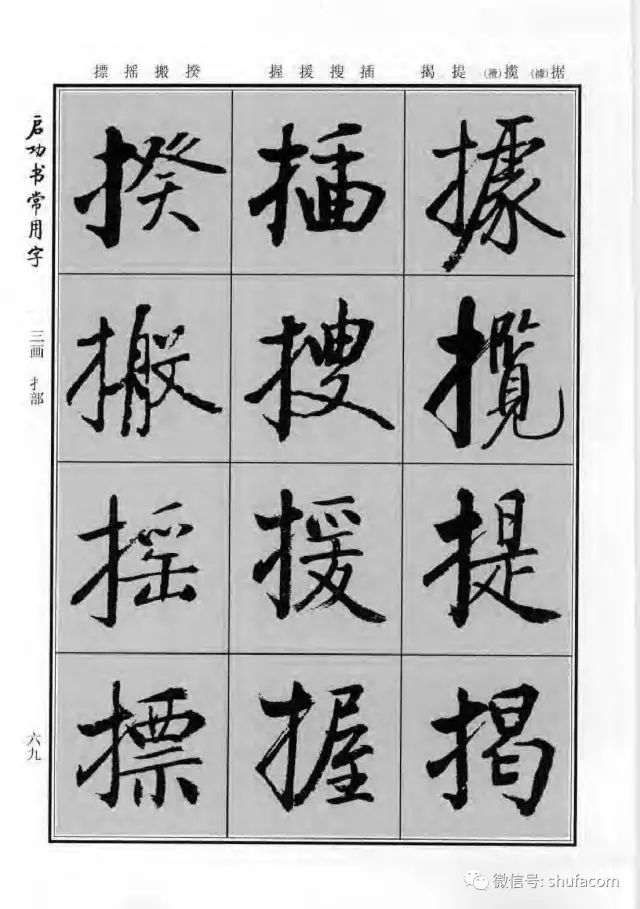 据(據)揽(攬)提揭
插搜援握
揆搬摇摽
據攬提揭
插搜援握
揆搬摇摽
启功书常用字
三画 扌部
六九
微信号: shufacom